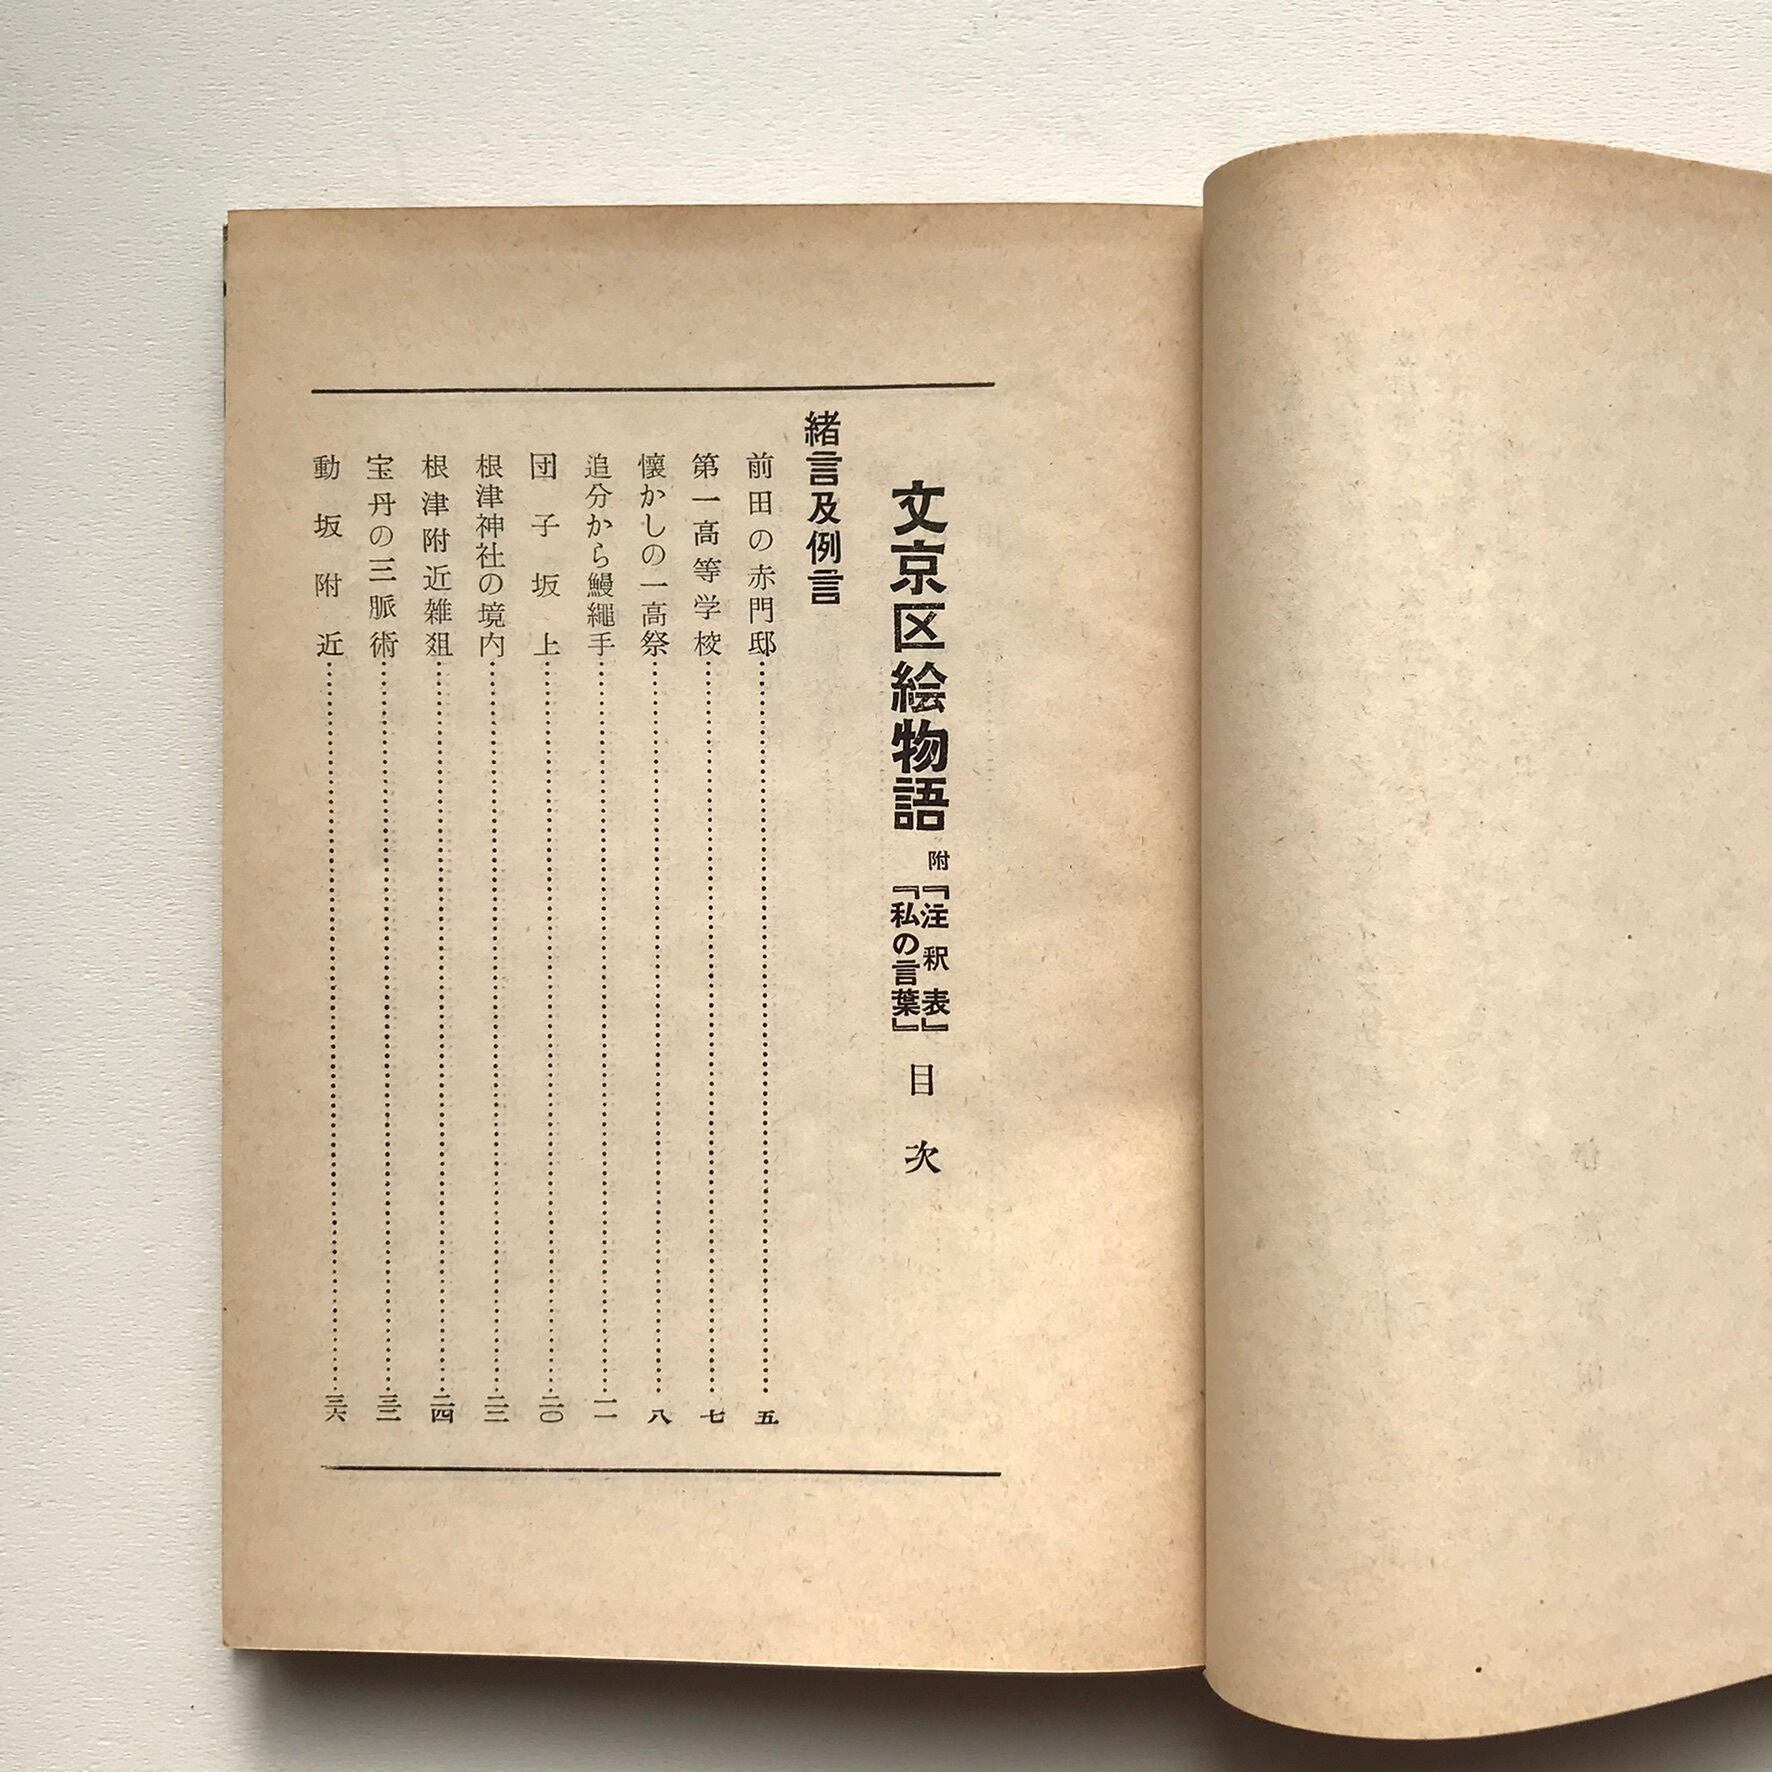 文京区絵物語 附『注釈表』『私の言葉』 目次
緒言及例言
前田の赤門邸……五
第一高等学校……七
懐かしの一高祭……八
追分から鰻縄手……一一
団子坂上……二〇
根津神社の境内……二三
根津附近雑俎……二四
宝丹の三脈術……三三
動坂附近……三六